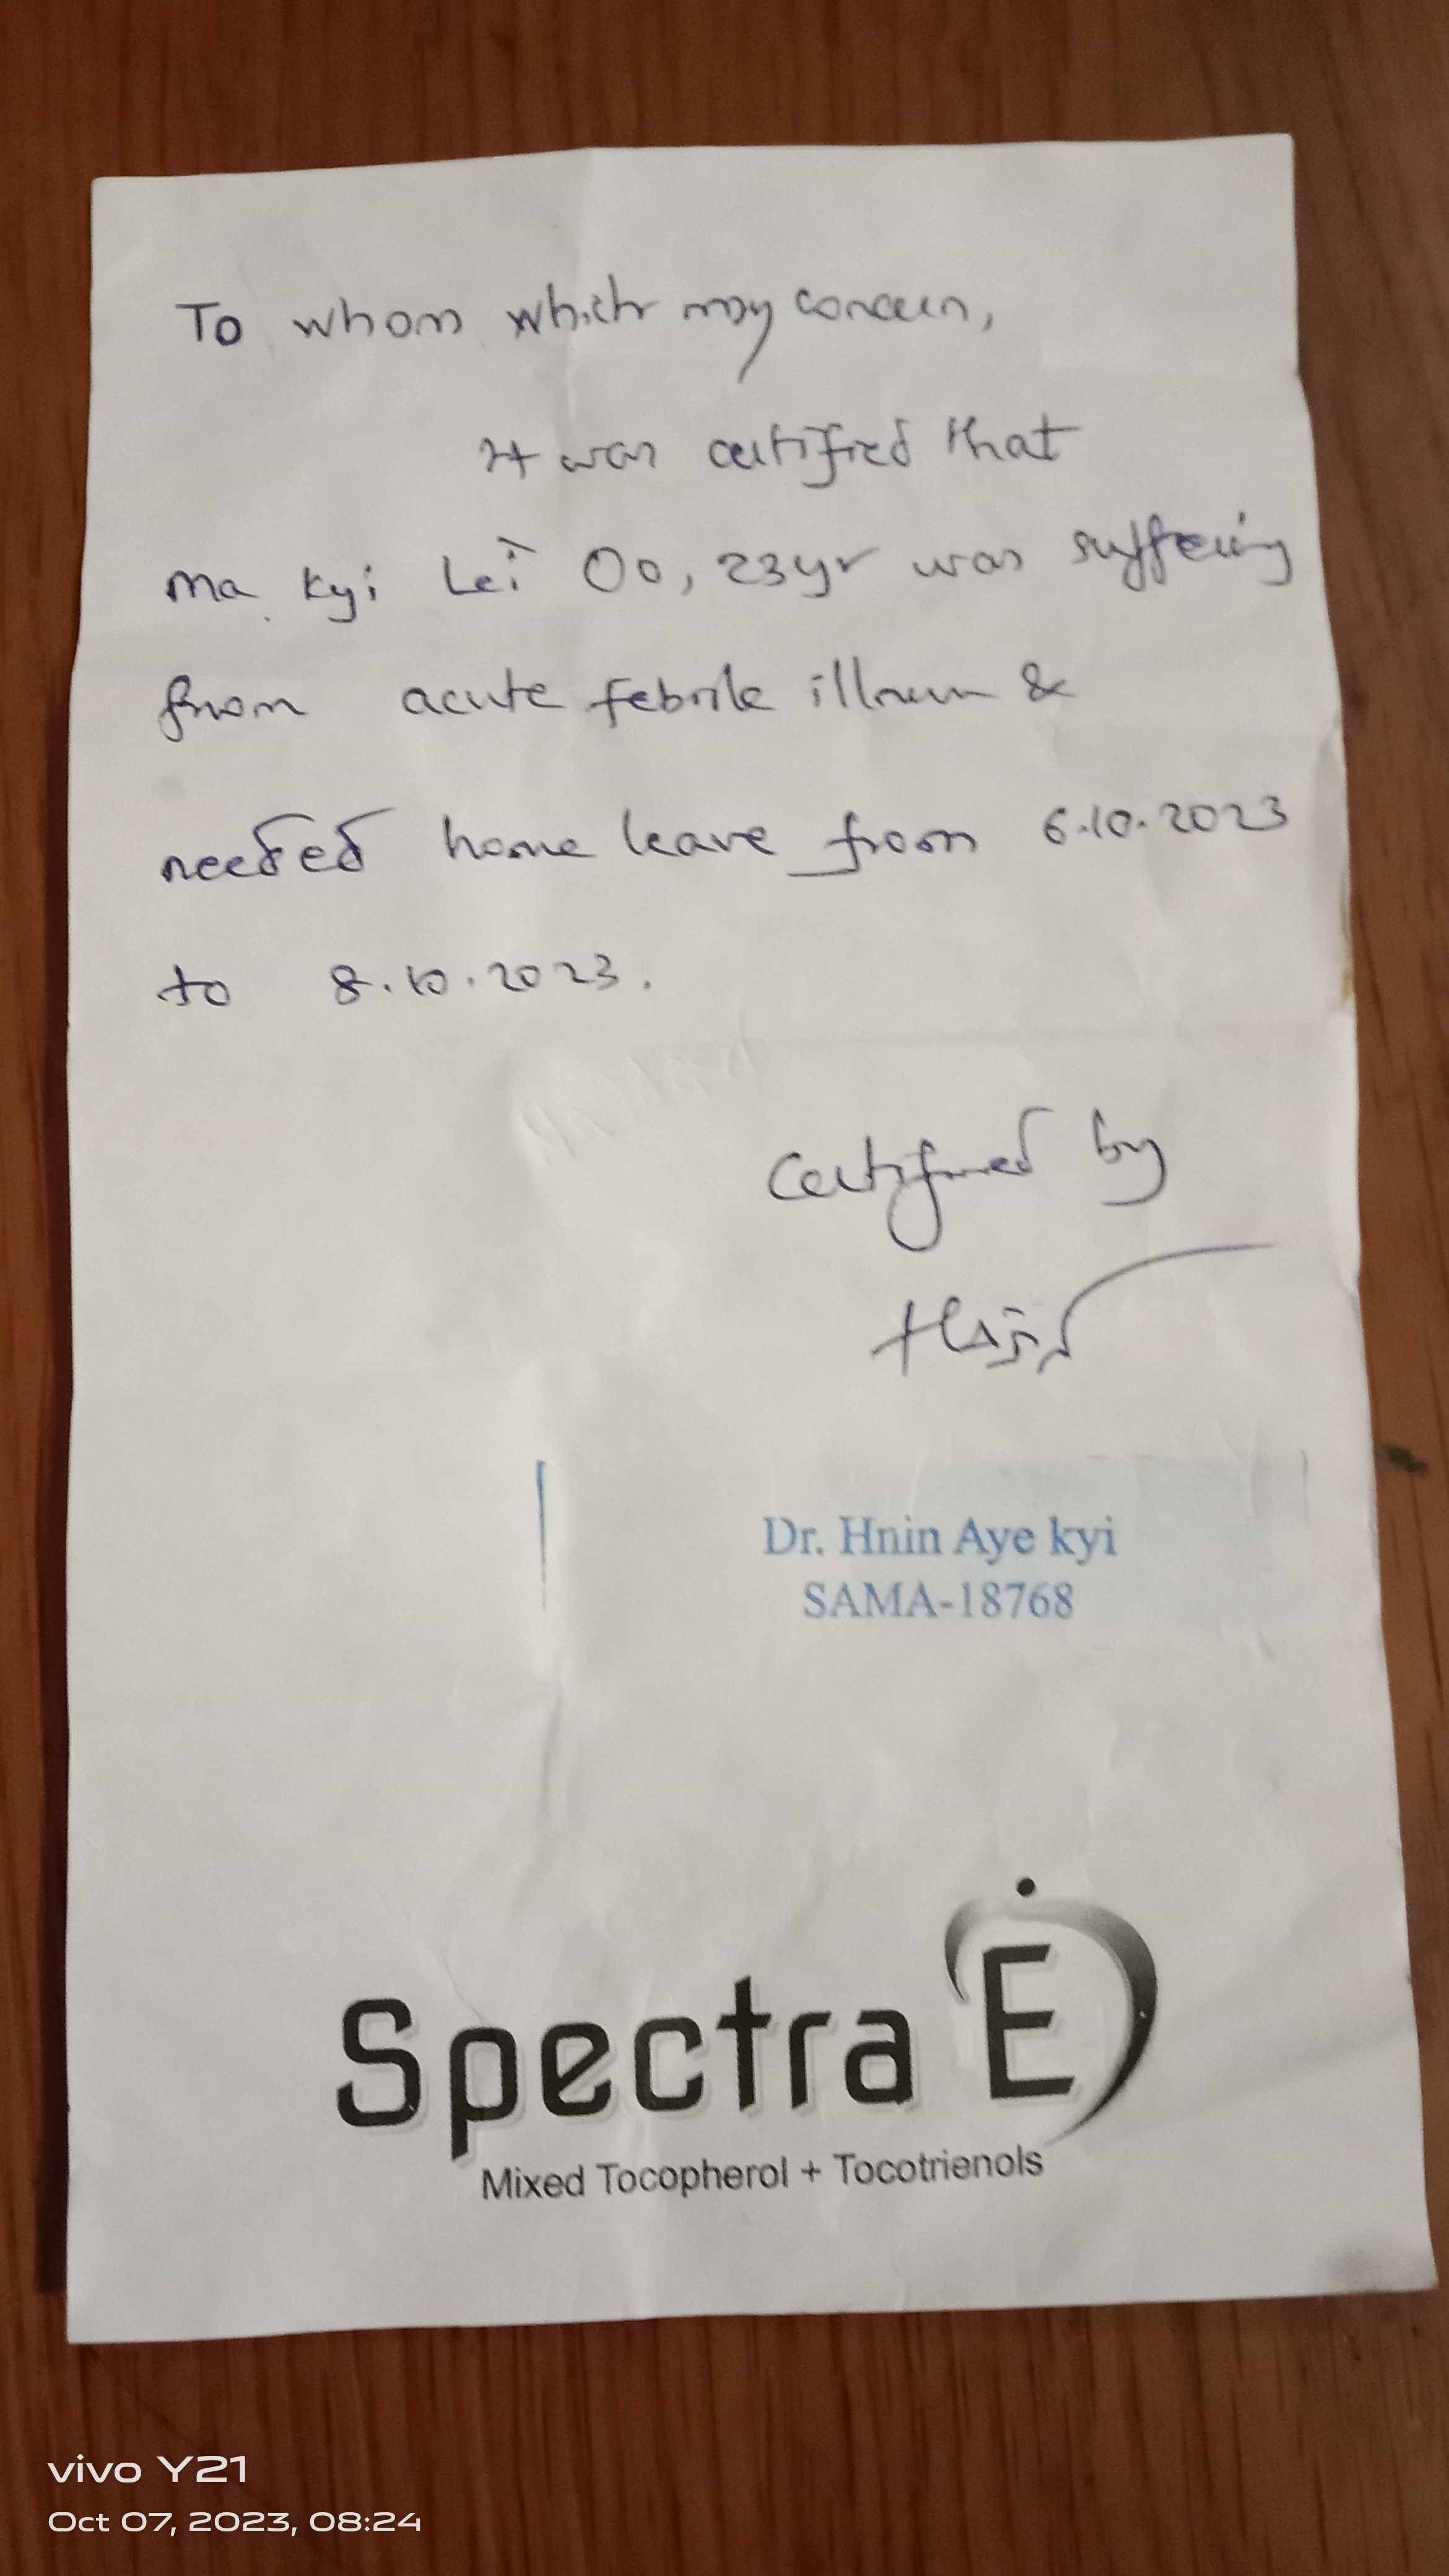 To whom which may concern,
It was certified that
Ma Kyi Lei Oo, 23yr was suffering
from acute febrile illness &
needed home leave from 6.10.2023
to 8.10.2023.
Certified by
Dr. Hnin Aye kyi
SAMA-18768
Spectra E
Mixed Tocopherol + Tocotrienols
vivo Y21
Oct 07, 2023, 08:24